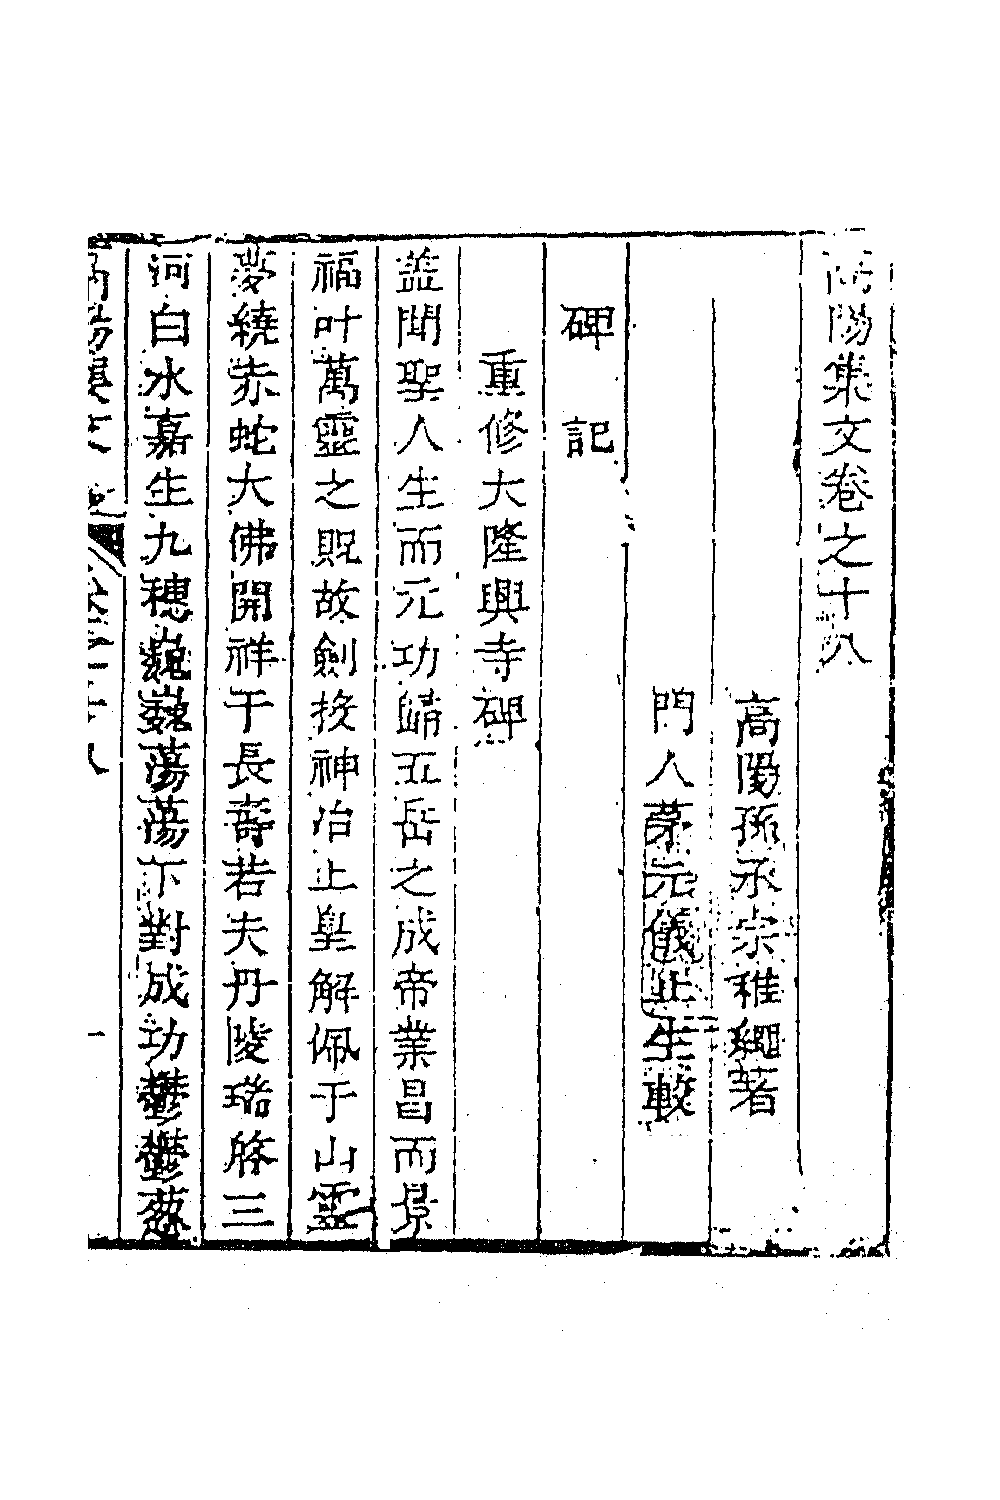 高陽集文卷之十八
高陽孫承宗稚繩著
門人茅元儀止生較
碑記
重修大隆興寺碑
葢聞聖人生而元功歸五岳之成帝業昌而景
福叶萬靈之貺故劍投神冶上皇解佩于山靈
夢繞赤蛇大佛開祥于長壽若夫丹陵瑞啓三
河白水嘉生九穗巍巍蕩蕩下對成功鬱鬱葱